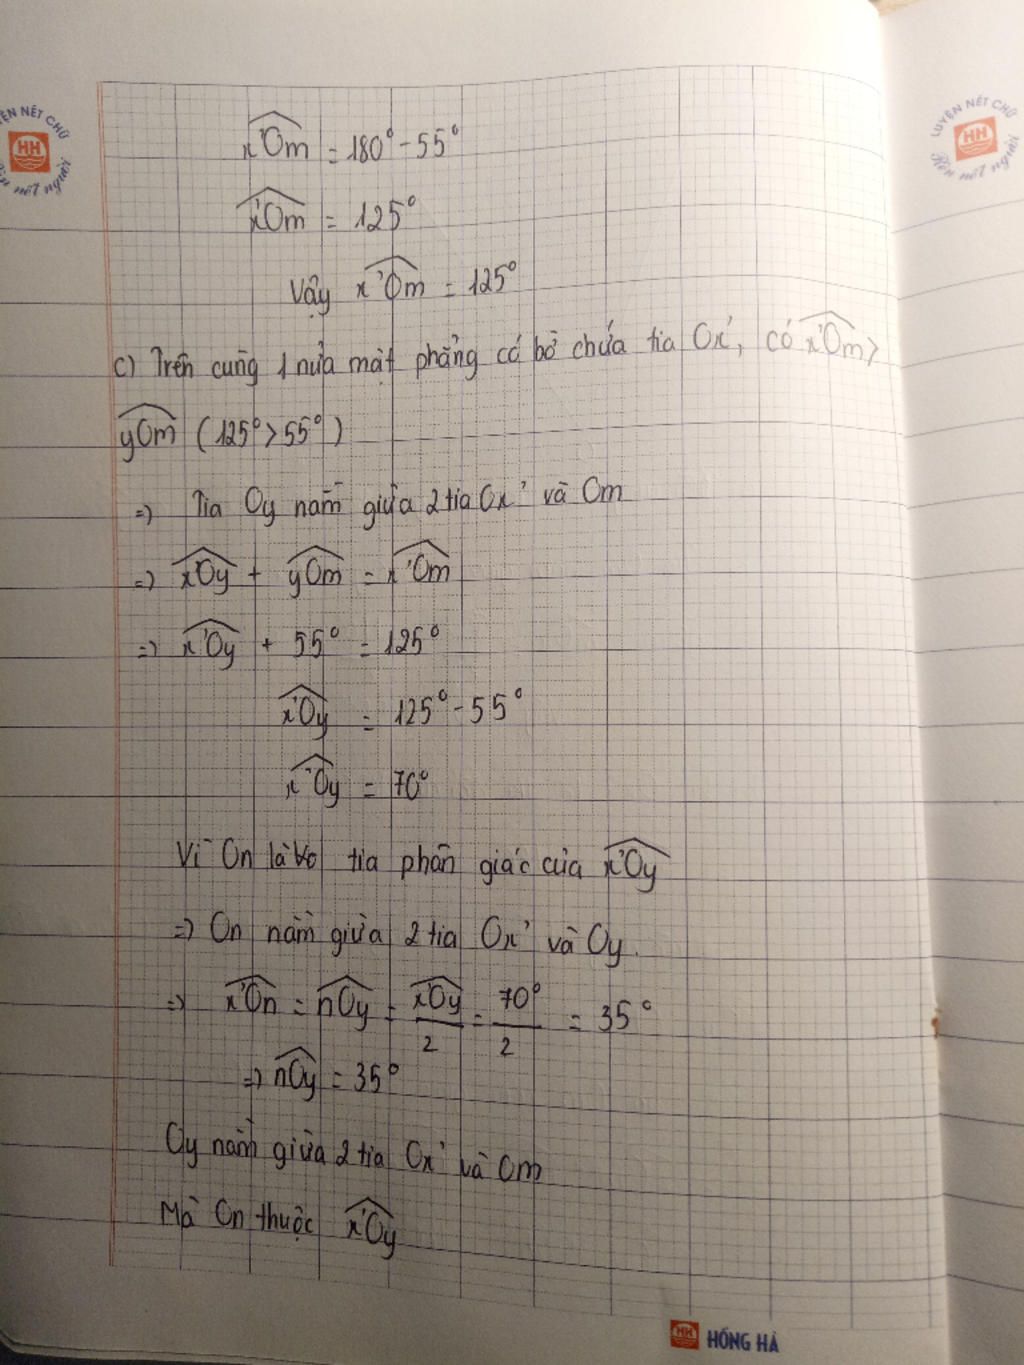 LUYỆN NÉT CHỮ
Rèn nết người
HH
x'Om = 180° - 55°
x'Om = 125°
Vậy x'Om = 125°
c) Trên cùng 1 nửa mặt phẳng có bờ chứa tia Ox', có x'Om >
yOm (125° > 55°)
=> Tia Oy nằm giữa 2 tia Ox' và Om
=> x'Oy + yOm = x'Om
=> x'Oy + 55° = 125°
x'Oy = 125° - 55°
x'Oy = 70°
Vì On là tia phân giác của x'Oy
=> On nằm giữa 2 tia Ox' và Oy.
=> x'On = nOy = x'Oy/2 = 70°/2 = 35°
=> nOy = 35°
Oy nằm giữa 2 tia Ox' và Om
Mà On thuộc x'Oy
HH HỒNG HÀ